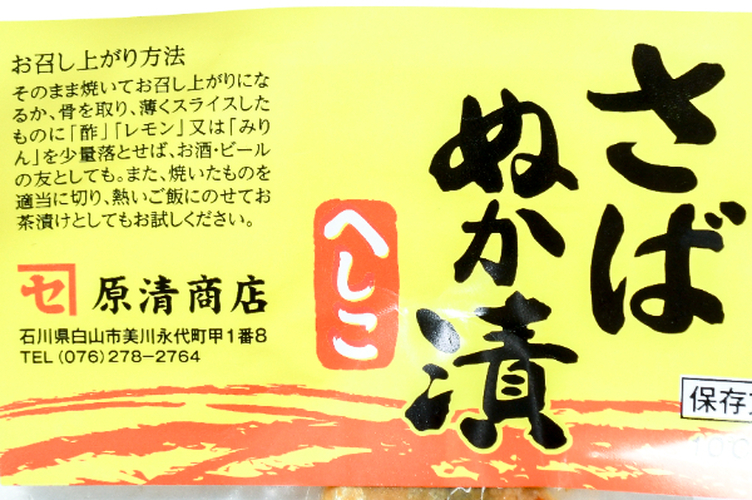 さば
ぬか漬
へしこ
お召し上がり方法
そのまま焼いてお召し上がりにな
るか、骨を取り、薄くスライスした
ものに「酢」「レモン」又は「みり
ん」を少量落とせば、お酒・ビール
の友としても。また、焼いたものを
適当に切り、熱いご飯にのせてお
茶漬けとしてもお試しください。
セ 原清商店
石川県白山市美川永代町甲1番8
TEL(076)278-2764
保存